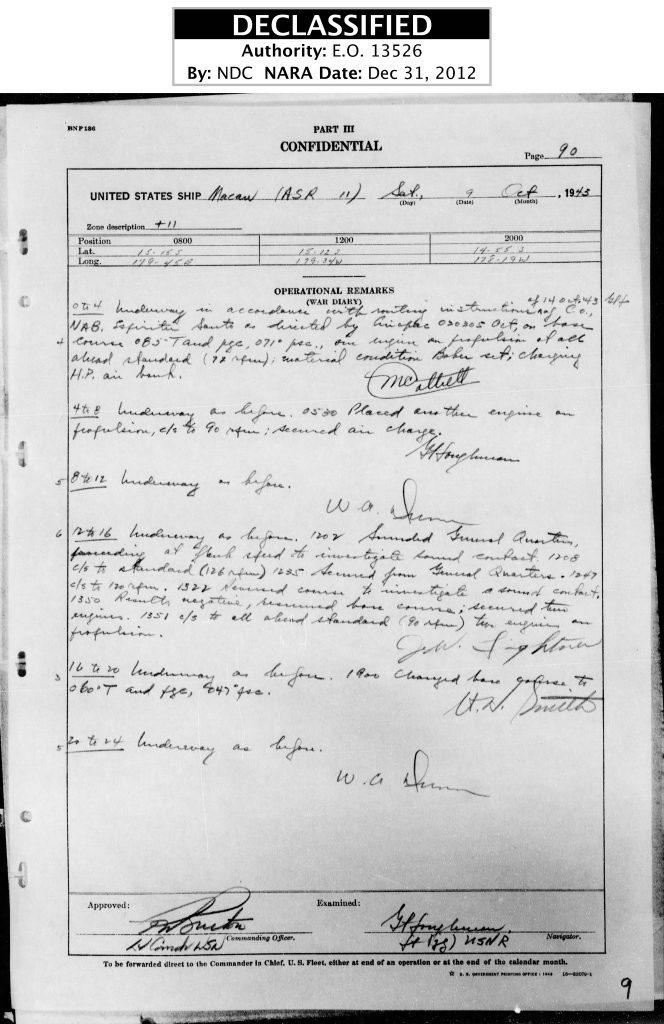 DECLASSIFIED
Authority: E.O. 13526
By: NDC NARA Date: Dec 31, 2012
BNP 186
PART III
CONFIDENTIAL
Page 90
UNITED STATES SHIP Macaw (ASR 11) Sat, 9 Oct, 1943
(Day) (Date) (Month)
Zone description +11
Position 0800 1200 2000
Lat.
Long.
OPERATIONAL REMARKS
(WAR DIARY)
of 14 Oct. 43
0 to 4 Underway in accordance with routing instructions of C.O.,
NAB, Espiritu Santo as directed by 030205 Oct, on base
course 085° T and pgc, 071° psc., one engine on propulsion at all
ahead standard (72 rpm); material condition Baker set; charging
H.P. air bank.
4 to 8 Underway as before. 0530 Placed another engine on
propulsion, c/s to 90 rpm; secured air charge.
8 to 12 Underway as before.
W. A. Dunn
12 to 16 Underway as before. 1202 Sounded General Quarters,
proceeding at flank speed to investigate sound contact. 1208
c/s to standard (126 rpm) 1235 Secured from General Quarters. 1247
c/s to 120 rpm. 1322 course to investigate a sound contact.
1350 Results negative, resumed base course; secured two
engines. 1351 c/s to all ahead standard (90 rpm) two engines on
propulsion.
16 to 20 Underway as before. 1900 Changed base course to
060° T and pgc, 047° psc.
H. D. Smith
20 to 24 Underway as before.
W. A. Dunn
Approved: Examined:
Lt Comdr USN Commanding Officer. Lt (jg) USNR Navigator.
To be forwarded direct to the Commander in Chief, U. S. Fleet, either at end of an operation or at the end of the calendar month.
☆ U. S. GOVERNMENT PRINTING OFFICE : 1943
9